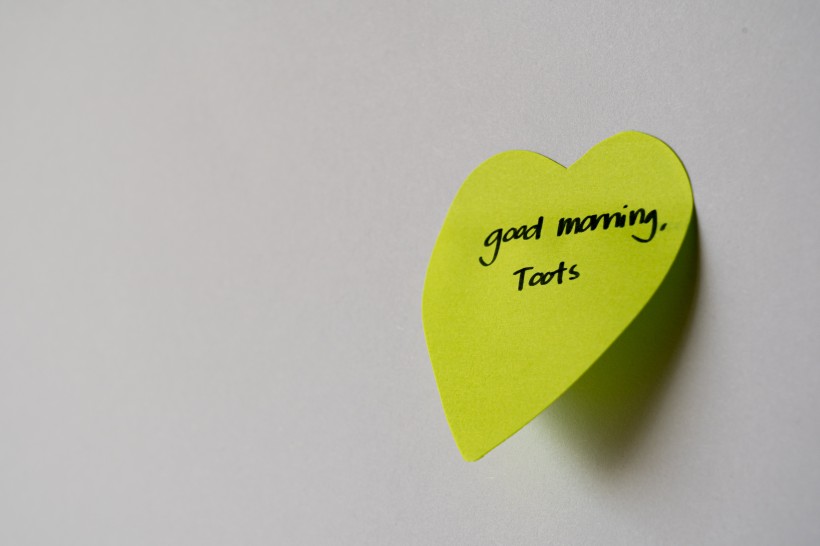 good morning,
Toots